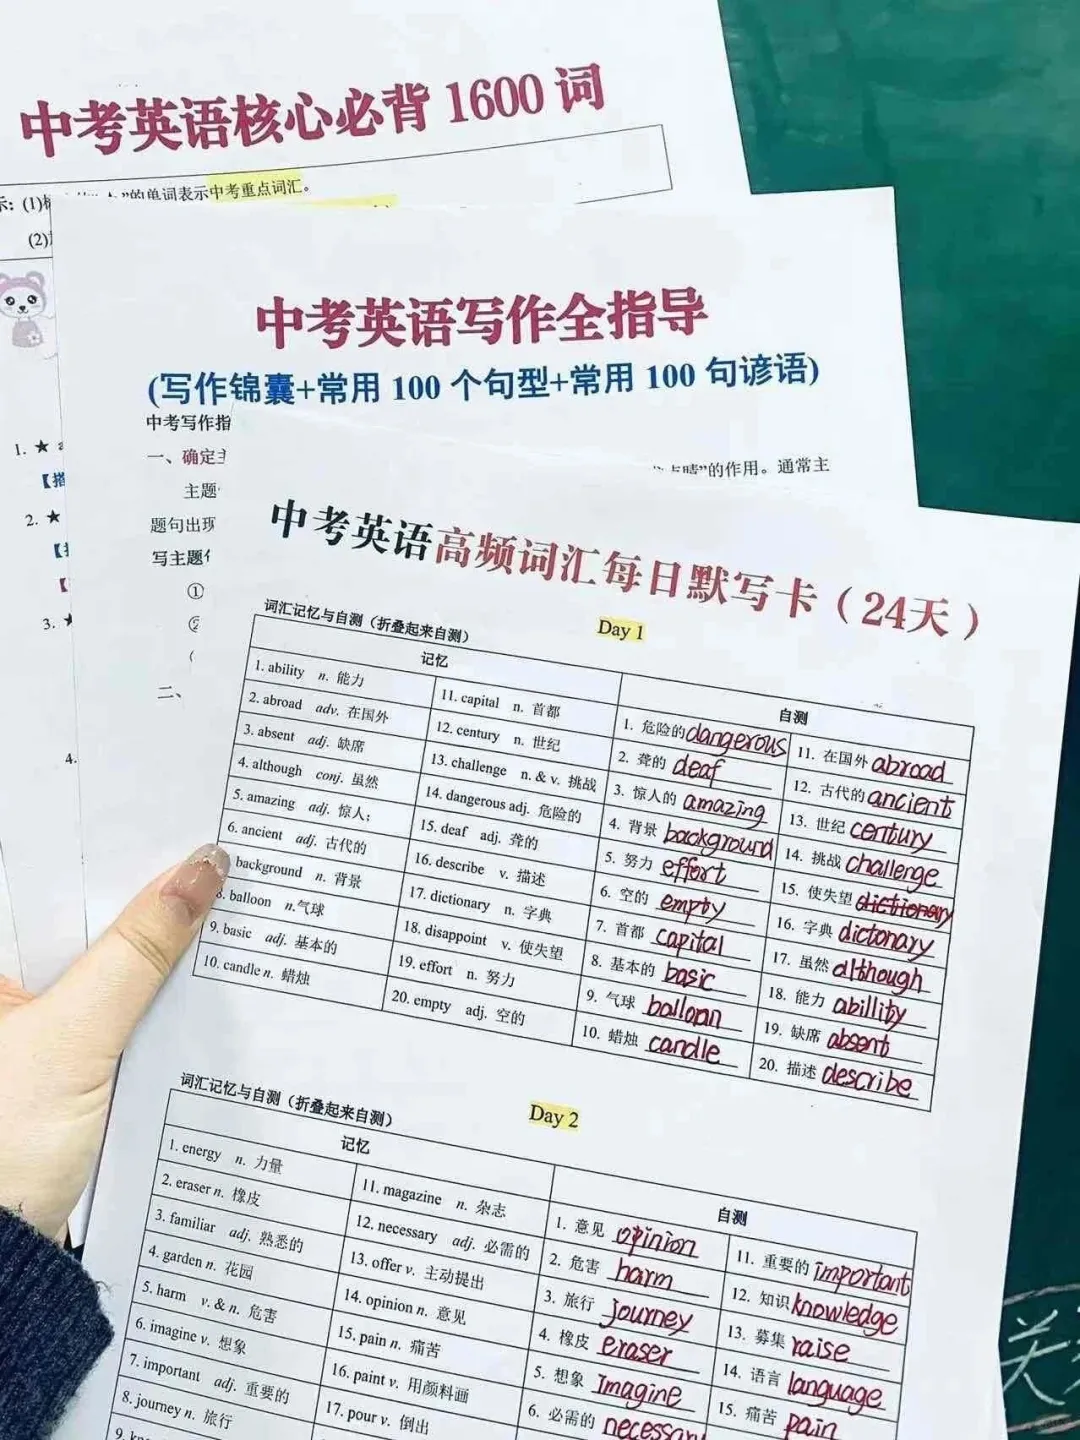 中考英语核心必背1600词
示：(1)
的单词表示中考重点词汇。
(2)
1. ★ a
2. ★
3. ★
4.
中考英语写作全指导
(写作锦囊+常用100个句型+常用100句谚语)
中考写作指
一、确定主
点睛”的作用。通常主
主题
题句出现
写主题
①
②
二、
中考英语高频词汇每日默写卡（24天）
词汇记忆与自测（折叠起来自测）
Day 1
记忆
自测
1. ability n. 能力
2. abroad adv. 在国外
3. absent adj. 缺席
4. although conj. 虽然
5. amazing adj. 惊人;
6. ancient adj. 古代的
background n. 背景
8. balloon n.气球
9. basic adj. 基本的
10. candle n. 蜡烛
11. capital n. 首都
12. century n. 世纪
13. challenge n. & v. 挑战
14. dangerous adj. 危险的
15. deaf adj. 聋的
16. describe v. 描述
17. dictionary n. 字典
18. disappoint v. 使失望
19. effort n. 努力
20. empty adj. 空的
1. 危险的 dangerous
2. 聋的 deaf
3. 惊人的 amazing
4. 背景 background
5. 努力 effort
6. 空的 empty
7. 首都 capital
8. 基本的 basic
9. 气球 balloon
10. 蜡烛 candle
11. 在国外 abroad
12. 古代的 ancient
13. 世纪 century
14. 挑战 challenge
15. 使失望 dictionary
16. 字典 dictonary
17. 虽然 although
18. 能力 abillity
19. 缺席 absent
20. 描述 describe
词汇记忆与自测（折叠起来自测）
Day 2
记忆
自测
1. energy n. 力量
2. eraser n. 橡皮
3. familiar adj. 熟悉的
4. garden n. 花园
5. harm v. & n. 危害
6. imagine v. 想象
7. important adj. 重要的
8. journey n. 旅行
11. magazine n. 杂志
12. necessary adj. 必需的
13. offer v. 主动提出
14. opinion n. 意见
15. pain n. 痛苦
16. paint v. 用颜料画
17. pour v. 倒出
1. 意见 opinion
2. 危害 harm
3. 旅行 journey
4. 橡皮 eraser
5. 想象 imagine
6. 必需的 necessary
11. 重要的 important
12. 知识 knowledge
13. 募集 raise
14. 语言 language
15. 痛苦 pain
关